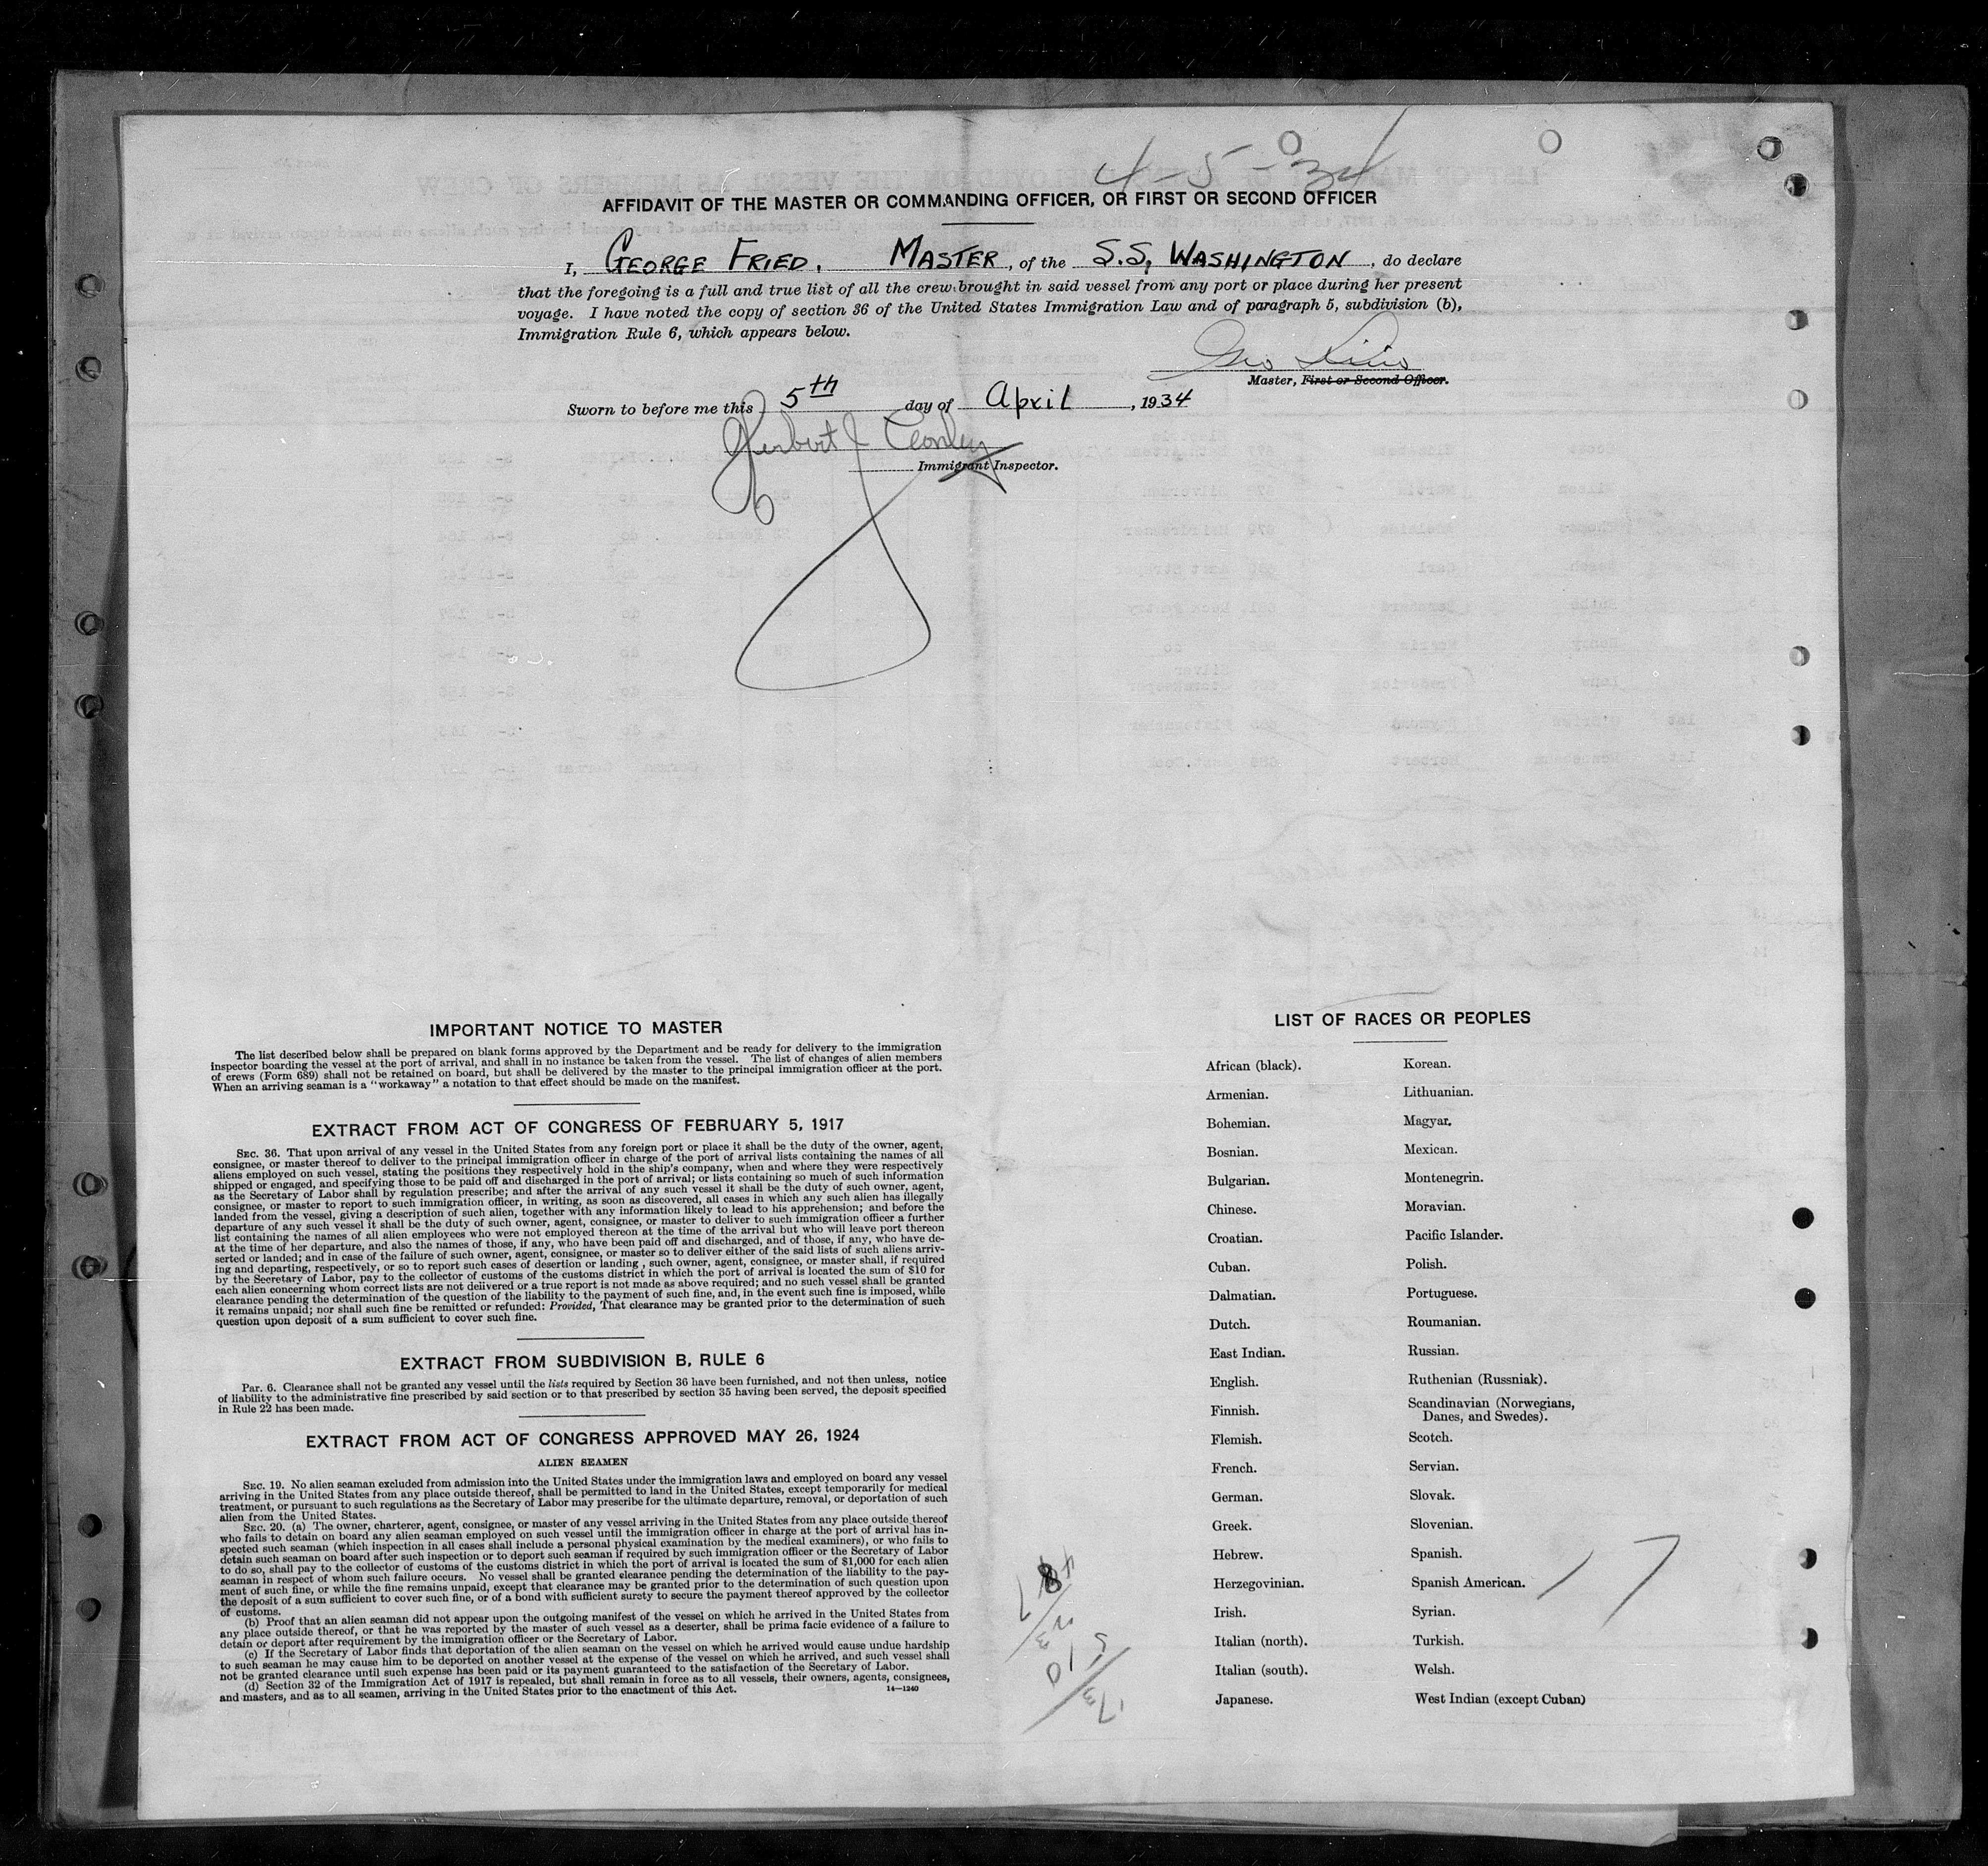 4-5-34
AFFIDAVIT OF THE MASTER OR COMMANDING OFFICER, OR FIRST OR SECOND OFFICER
I, GEORGE FRIED, MASTER, of the S.S. WASHINGTON, do declare
that the foregoing is a full and true list of all the crew brought in said vessel from any port or place during her present
voyage. I have noted the copy of section 36 of the United States Immigration Law and of paragraph 5, subdivision (b),
Immigration Rule 6, which appears below.
Geo Fried
Master, First or Second Officer.
Sworn to before me this 5th day of April, 1934
Herbert J
Immigrant Inspector.
IMPORTANT NOTICE TO MASTER
The list described below shall be prepared on blank forms approved by the Department and be ready for delivery to the immigration
inspector boarding the vessel at the port of arrival, and shall in no instance be taken from the vessel. The list of changes of alien members
of crews (Form 689) shall not be retained on board, but shall be delivered by the master to the principal immigration officer at the port.
When an arriving seaman is a "workaway" a notation to that effect should be made on the manifest.
EXTRACT FROM ACT OF CONGRESS OF FEBRUARY 5, 1917
SEC. 36. That upon arrival of any vessel in the United States from any foreign port or place it shall be the duty of the owner, agent,
consignee, or master thereof to deliver to the principal immigration officer in charge of the port of arrival lists containing the names of all
aliens employed on such vessel, stating the positions they respectively hold in the ship's company, when and where they were respectively
shipped or engaged, and specifying those to be paid off and discharged in the port of arrival; or lists containing so much of such information
as the Secretary of Labor shall by regulation prescribe; and after the arrival of any such vessel it shall be the duty of such owner, agent,
consignee, or master to report to such immigration officer, in writing, as soon as discovered, all cases in which any such alien has illegally
landed from the vessel, giving a description of such alien, together with any information likely to lead to his apprehension; and before the
departure of any such vessel it shall be the duty of such owner, agent, consignee, or master to deliver to such immigration officer a further
list containing the names of all alien employees who were not employed thereon at the time of the arrival but who will leave port thereon
at the time of her departure, and also the names of those, if any, who have been paid off and discharged, and of those, if any, who have de-
serted or landed; and in case of the failure of such owner, agent, consignee, or master so to deliver either of the said lists of such aliens arriv-
ing and departing, respectively, or so to report such cases of desertion or landing , such owner, agent, consignee, or master shall, if required
by the Secretary of Labor, pay to the collector of customs of the customs district in which the port of arrival is located the sum of $10 for
each alien concerning whom correct lists are not delivered or a true report is not made as above required; and no such vessel shall be granted
clearance pending the determination of the question of the liability to the payment of such fine, and, in the event such fine is imposed, while
it remains unpaid; nor shall such fine be remitted or refunded: Provided, That clearance may be granted prior to the determination of such
question upon deposit of a sum sufficient to cover such fine.
EXTRACT FROM SUBDIVISION B, RULE 6
Par. 6. Clearance shall not be granted any vessel until the lists required by Section 36 have been furnished, and not then unless, notice
of liability to the administrative fine prescribed by said section or to that prescribed by section 35 having been served, the deposit specified
in Rule 22 has been made.
EXTRACT FROM ACT OF CONGRESS APPROVED MAY 26, 1924
ALIEN SEAMEN
SEC. 19. No alien seaman excluded from admission into the United States under the immigration laws and employed on board any vessel
arriving in the United States from any place outside thereof, shall be permitted to land in the United States, except temporarily for medical
treatment, or pursuant to such regulations as the Secretary of Labor may prescribe for the ultimate departure, removal, or deportation of such
alien from the United States.
SEC. 20. (a) The owner, charterer, agent, consignee, or master of any vessel arriving in the United States from any place outside thereof
who fails to detain on board any alien seaman employed on such vessel until the immigration officer in charge at the port of arrival has in-
spected such seaman (which inspection in all cases shall include a personal physical examination by the medical examiners), or who fails to
detain such seaman on board after such inspection or to deport such seaman if required by such immigration officer or the Secretary of Labor
to do so, shall pay to the collector of customs of the customs district in which the port of arrival is located the sum of $1,000 for each alien
seaman in respect of whom such failure occurs. No vessel shall be granted clearance pending the determination of the liability to the pay-
ment of such fine, or while the fine remains unpaid, except that clearance may be granted prior to the determination of such question upon
the deposit of a sum sufficient to cover such fine, or of a bond with sufficient surety to secure the payment thereof approved by the collector
of customs.
(b) Proof that an alien seaman did not appear upon the outgoing manifest of the vessel on which he arrived in the United States from
any place outside thereof, or that he was reported by the master of such vessel as a deserter, shall be prima facie evidence of a failure to
detain or deport after requirement by the immigration officer or the Secretary of Labor.
(c) If the Secretary of Labor finds that deportation of the alien seaman on the vessel on which he arrived would cause undue hardship
to such seaman he may cause him to be deported on another vessel at the expense of the vessel on which he arrived, and such vessel shall
not be granted clearance until such expense has been paid or its payment guaranteed to the satisfaction of the Secretary of Labor.
(d) Section 32 of the Immigration Act of 1917 is repealed, but shall remain in force as to all vessels, their owners, agents, consignees,
and masters, and as to all seamen, arriving in the United States prior to the enactment of this Act. 14—1240
LIST OF RACES OR PEOPLES
African (black). Korean.
Armenian. Lithuanian.
Bohemian. Magyar.
Bosnian. Mexican.
Bulgarian. Montenegrin.
Chinese. Moravian.
Croatian. Pacific Islander.
Cuban. Polish.
Dalmatian. Portuguese.
Dutch. Roumanian.
East Indian. Russian.
English. Ruthenian (Russniak).
Finnish. Scandinavian (Norwegians,
Danes, and Swedes).
Flemish. Scotch.
French. Servian.
German. Slovak.
Greek. Slovenian.
Hebrew. Spanish.
Herzegovinian. Spanish American.
Irish. Syrian.
Italian (north). Turkish.
Italian (south). Welsh.
Japanese. West Indian (except Cuban)
17